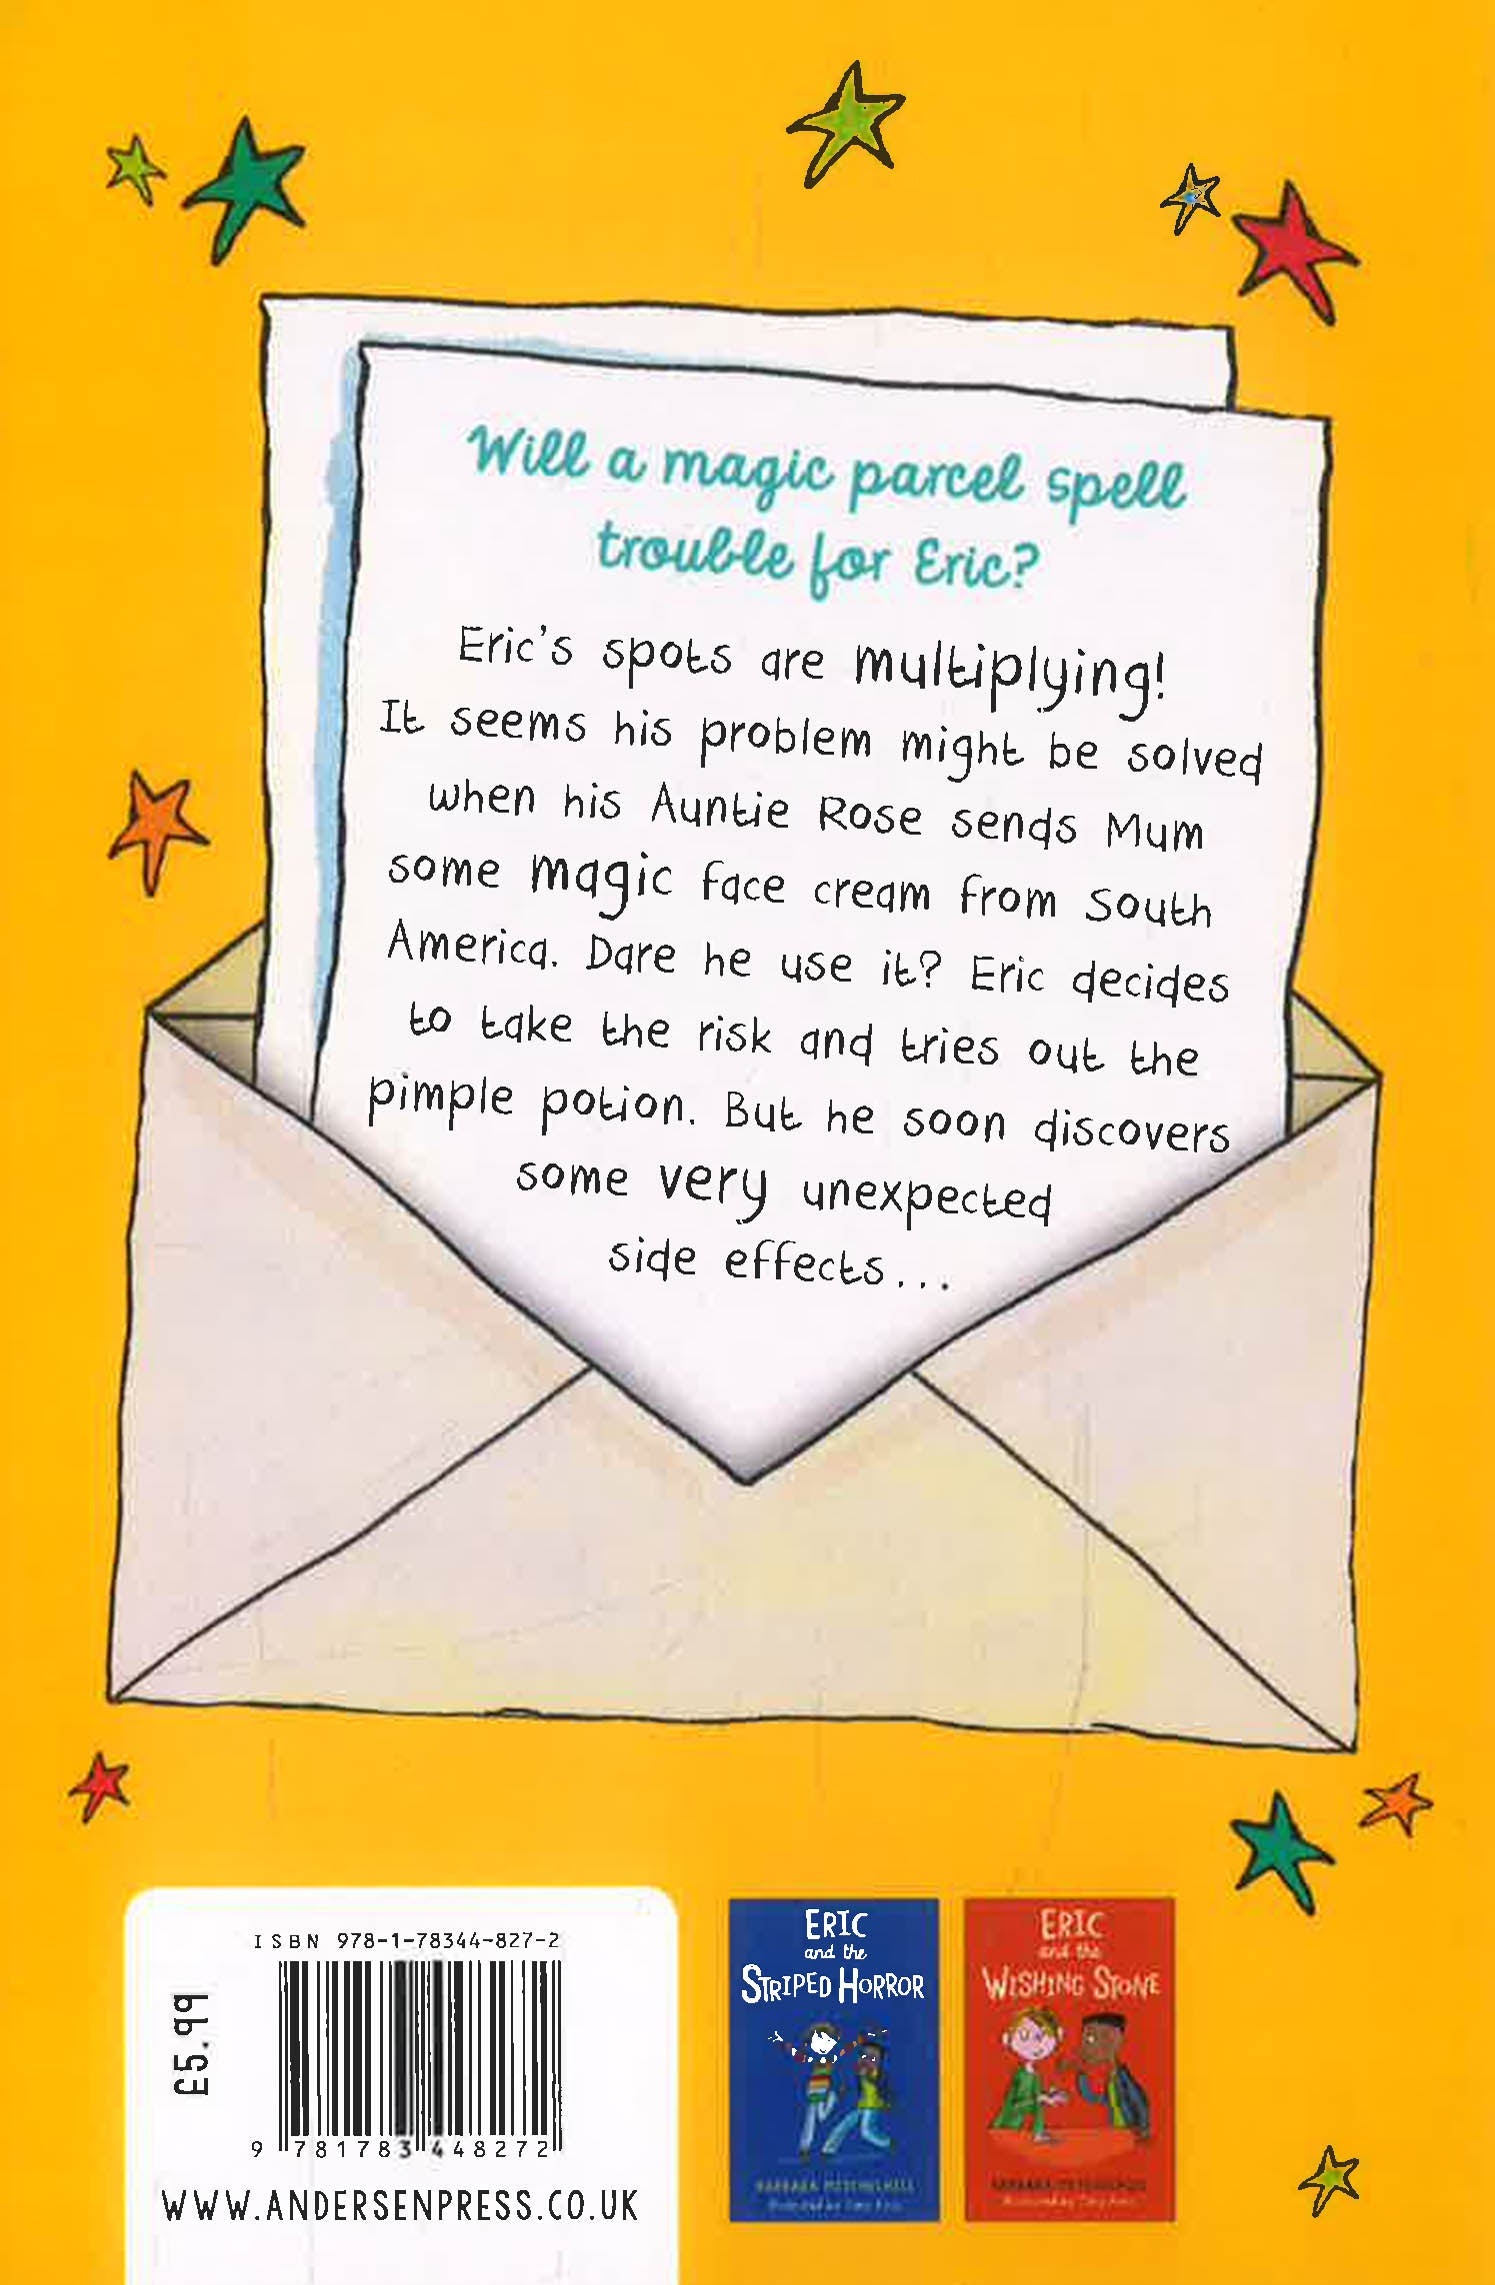 Will a magic parcel spell
trouble for Eric?
Eric's spots are multiplying!
It seems his problem might be solved
when his Auntie Rose sends Mum
some magic face cream from South
America. Dare he use it? Eric decides
to take the risk and tries out the
pimple potion. But he soon discovers
some very unexpected
side effects...
ISBN 978-1-78344-827-2
£5.99
9 781783 448272
WWW.ANDERSENPRESS.CO.UK
ERIC
and the
STRIPED HORROR
BARBARA MITCHELHILL
Illustrated by Tony Ross
ERIC
and the
WISHING STONE
BARBARA MITCHELHILL
Illustrated by Tony Ross